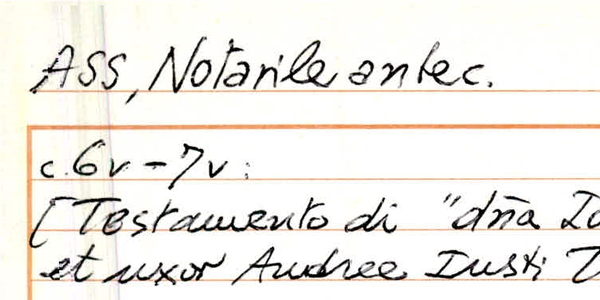 ASS, Notarile antec.
c. 6v - 7v:
[Testamento di "dña
et uxor Andree Iusti